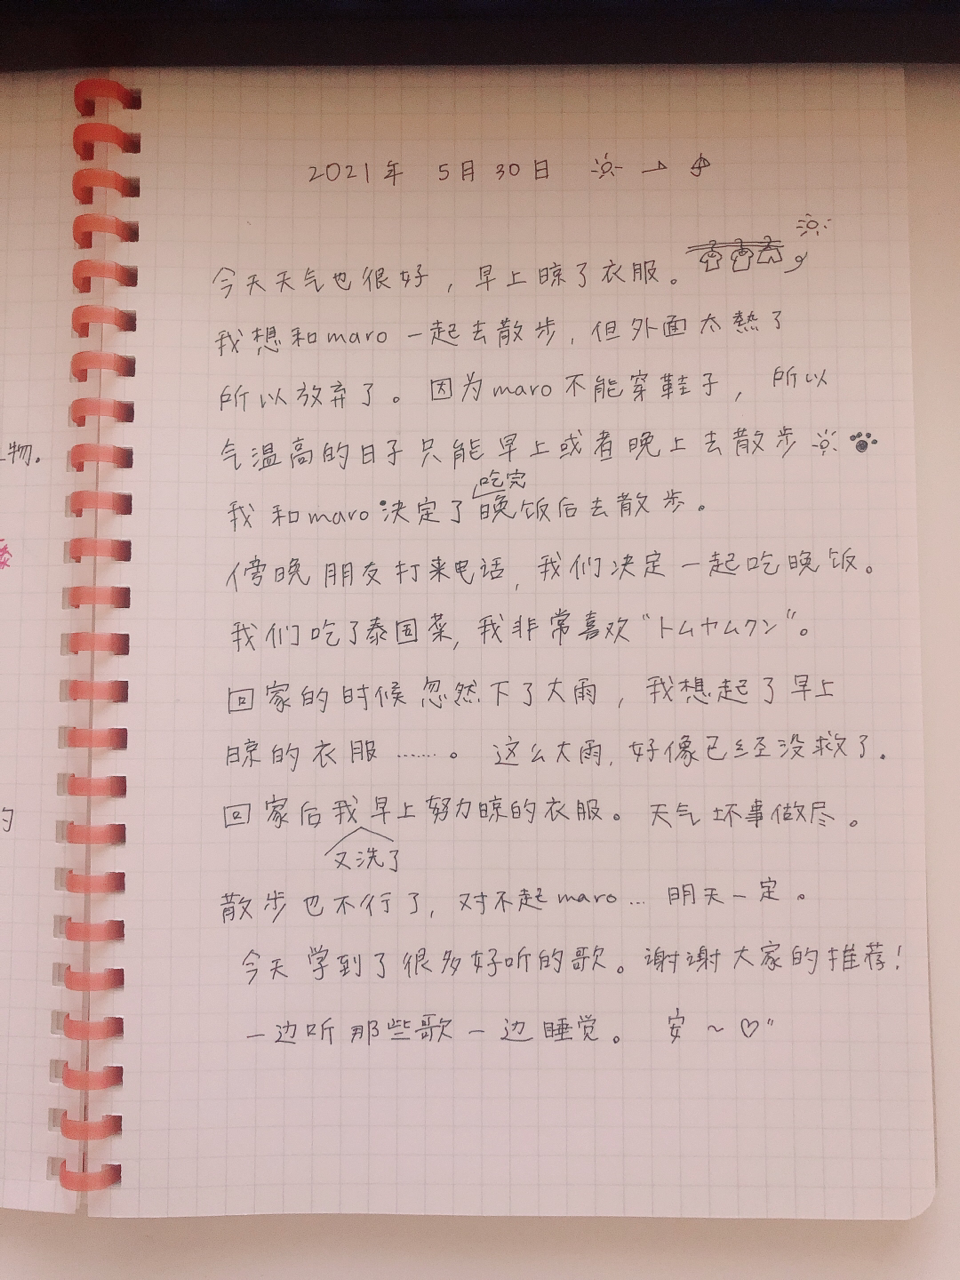 2021年 5月30日
今天天气也很好，早上晾了衣服。
我想和maro一起去散步，但外面太熱了
所以放弃了。因为maro不能穿鞋子，所以
气温高的日子只能早上或者晚上去散步
吃完
我和maro决定了晚饭后去散步。
傍晚朋友打来电话，我们决定一起吃晚饭。
我们吃了泰国菜，我非常喜欢"トムヤムクン"。
回家的时候忽然下了大雨，我想起了早上
晾的衣服……。这么大雨，好像已经没救了.
回家后我早上努力晾的衣服。天气坏事做尽。
又洗了
散步也不行了，对不起maro… 明天一定。
今天学到了很多好听的歌。谢谢大家的推荐!
一边听那些歌一边睡觉。安～♡"
物.
的